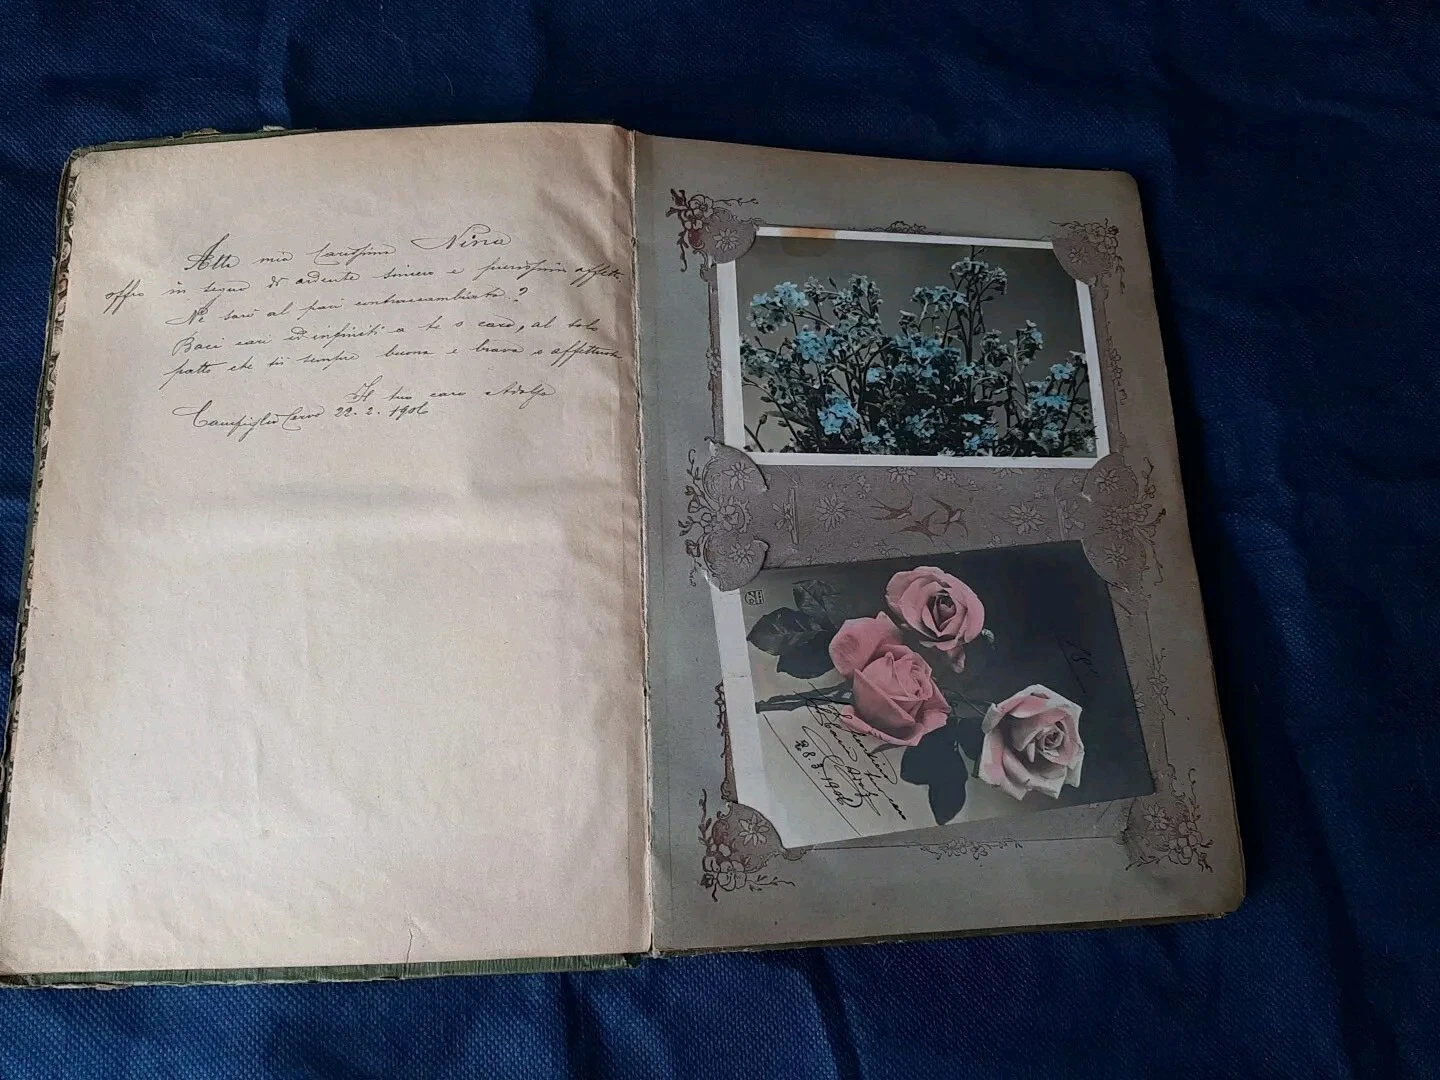 Alla mia Carissima Nina
offro in segno di ardente sincero e purissimo affetto
Ne sarò al pari contraccambiato?
Baci cari ed infiniti a te o cara, al solo
patto che sii sempre buona e brava e affettuosa
Il tuo caro Adolfo
Campiglia Cervo 22. 2. 1906
28.3.1906